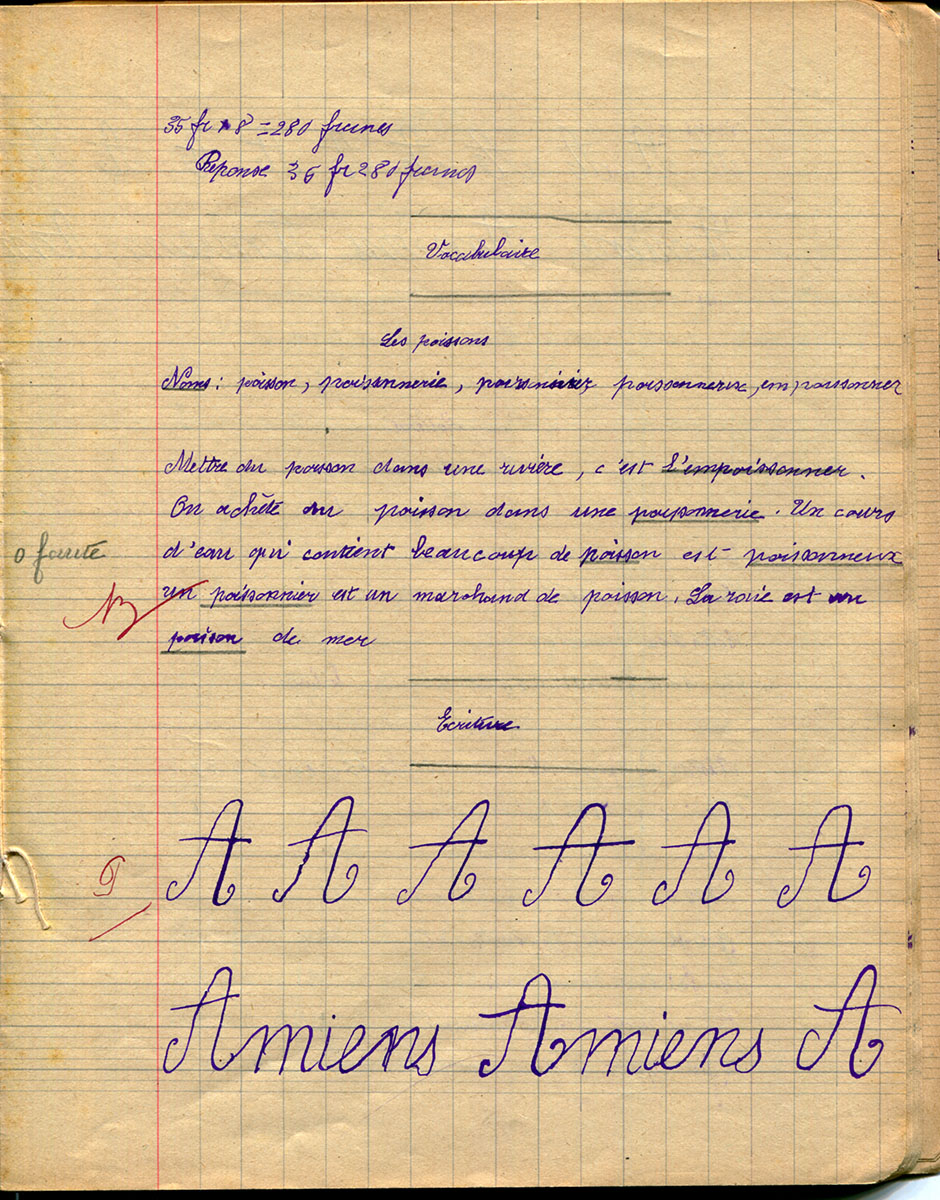 35 fr x 8 = 280 francs
Reponse 35 fr 280 francs
Vocabulaire
Les poissons
Noms : poisson, poissonnerie, poissonnier, poissonneux, empoissonner
Mettre du poisson dans une rivière, c'est l'empoissonner.
On achète du poisson dans une poissonnerie. Un cours
0 faute
d'eau qui contient beaucoup de poisson est poissonneux
un poissonnier est un marchand de poisson. La raie est un
poison de mer
Ecriture
A A A A A A
Amiens Amiens A